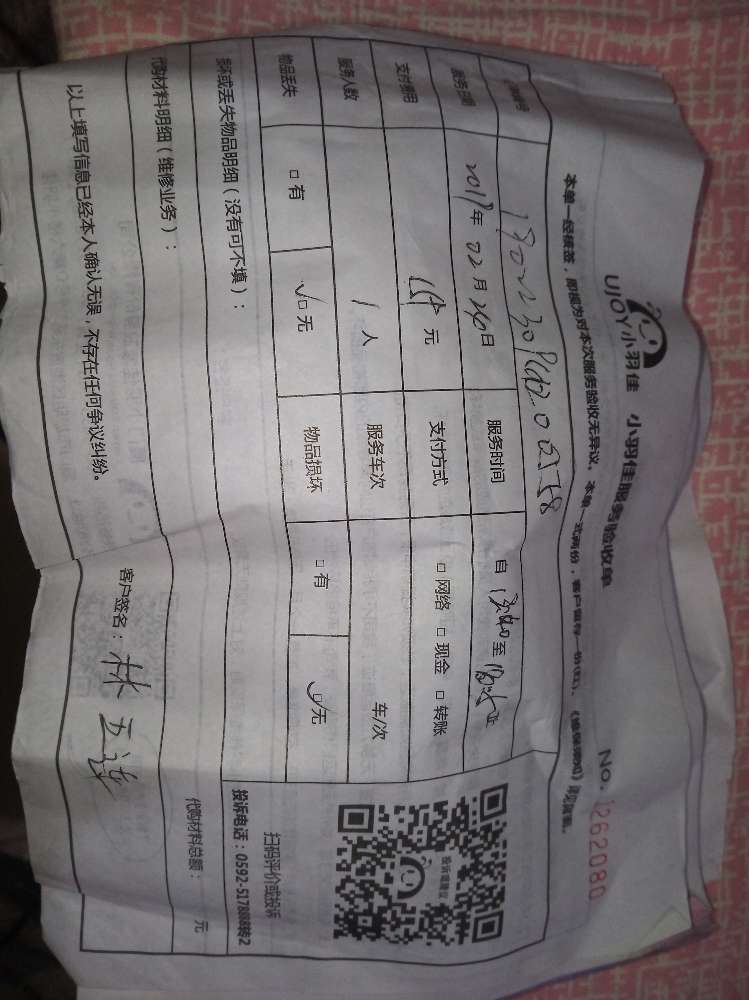 UJOY小羽佳 小羽佳服务验收单 No. 1262080
本单一经核签，即视为对本次服务验收无异议。本单一式两份，客户留存一份(红)，
服务日期 年 02 月 26 日 服务时间 自 至
支付费用 元 支付方式 □ 网络 □ 现金 □ 转账
服务人数 1 人 服务车次 车/次
物品丢失 □ 有 √□ 无 物品损坏 □ 有 √□ 无
或丢失物品明细（没有可不填）：
投诉或建议
扫码评价或投诉
投诉电话：0592-5178888转2
代购材料明细（维修业务）：
代购材料总额： 元
以上填写信息已经本人确认无误，不存在任何争议纠纷。
客户签名：林